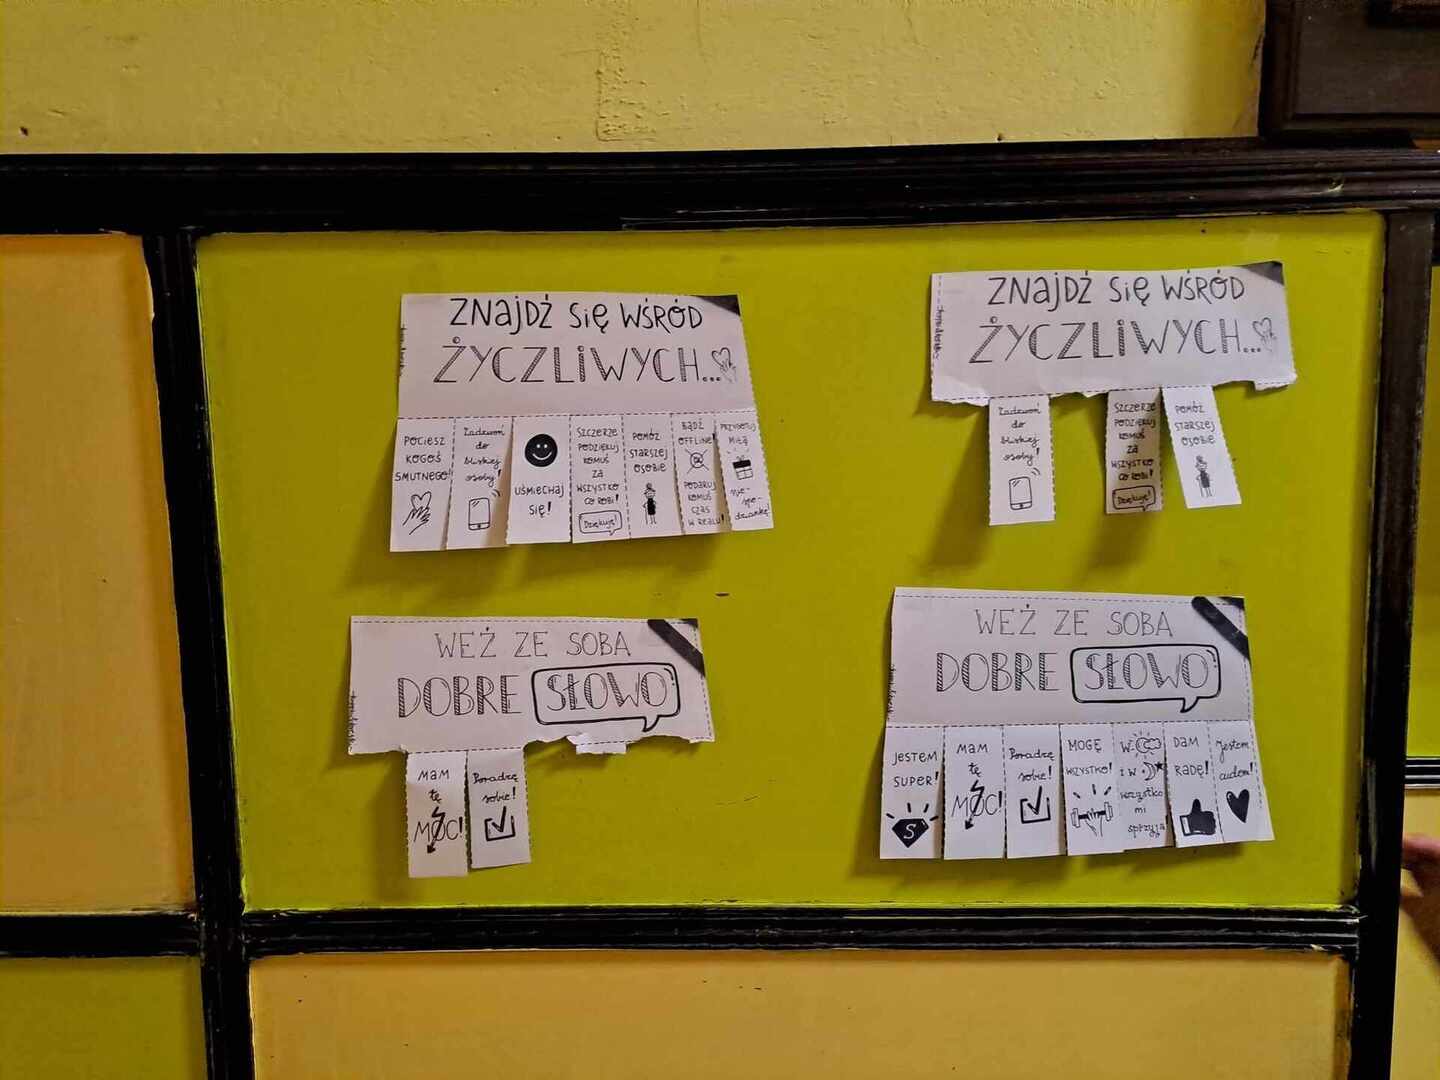 ZNAJDŹ SIĘ WŚRÓD
ŻYCZLIWYCH...
POCIESZ
KOGOŚ
SMUTNEGO!
Zadzwoń
do
bliskiej
osoby!
UŚMIECHAJ
SIĘ!
SZCZERZE
PODZIĘKUJ
KOMUŚ
ZA
WSZYSTKO
CO ROBI!
Dziękuję!
POMÓŻ
STARSZEJ
OSOBIE
BĄDŹ
OFFLINE
PODARUJ
KOMUŚ
CZAS
W REALU!
PRZYGOTUJ
MIŁĄ
nie-
spo-
dziankę!
ZNAJDŹ SIĘ WŚRÓD
ŻYCZLIWYCH...
Zadzwoń
do
bliskiej
osoby!
SZCZERZE
PODZIĘKUJ
KOMUŚ
ZA
WSZYSTKO
CO ROBI!
Dziękuję!
POMÓŻ
STARSZEJ
OSOBIE
WEŹ ZE SOBĄ
DOBRE SŁOWO
MAM
tę
MOC!
Poradzę
sobie!
WEŹ ZE SOBĄ
DOBRE SŁOWO
JESTEM
SUPER!
S
MAM
tę
MOC!
Poradzę
sobie!
MOGĘ
WSZYSTKO!
W
i w
wszystko
mi
sprzyja
DAM
RADĘ!
Jestem
cudem!